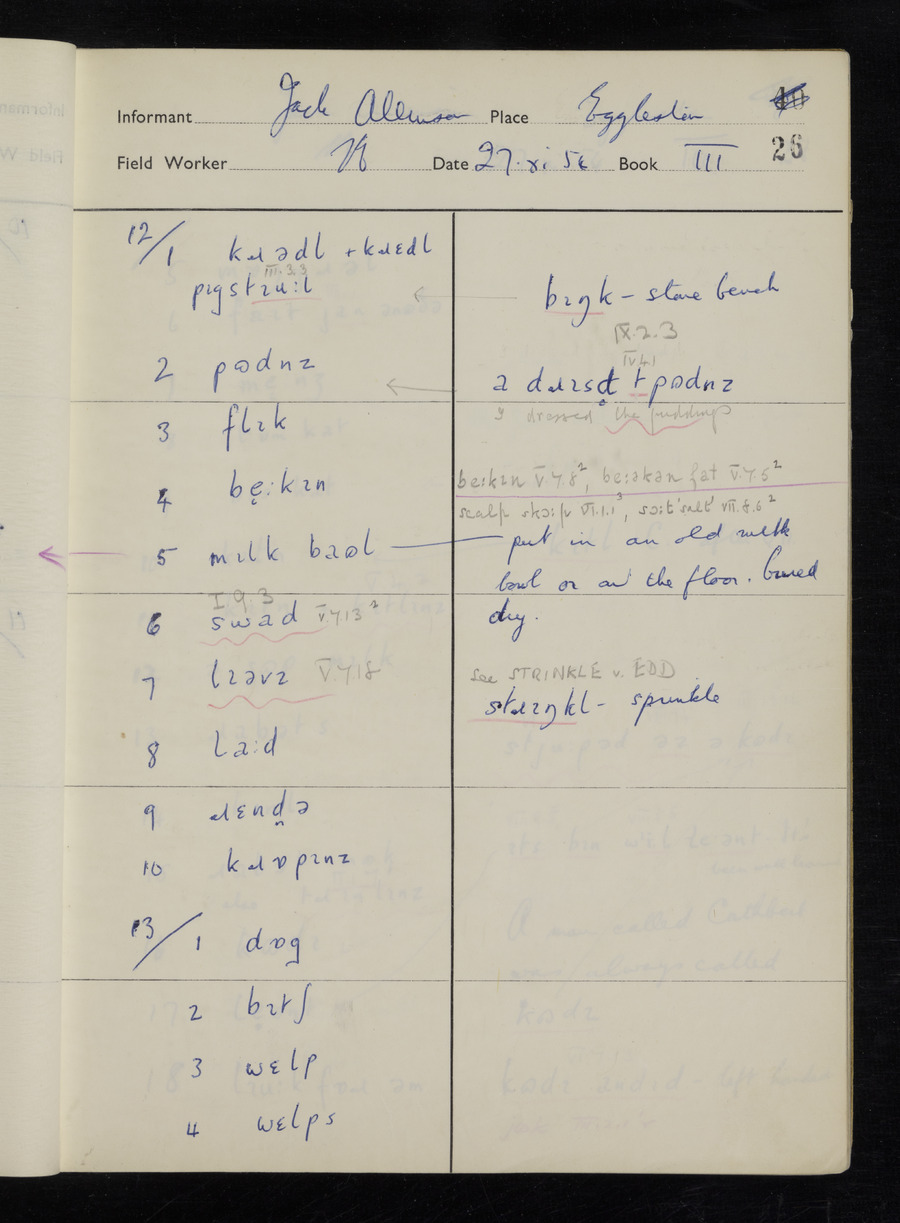 Informant Jack Place Eggleston 40
Field Worker Date 27. xi 56 Book III 26
12/1 kɹadl + kɹɛdl
III.3.3
pɪgstɹuːl bɪŋk – stone bench
IX.2.3
IV.4.1
2 pʊdnz ə dɹɪsd̥ t pʊdnz
I dressed the puddings
3 flɪk
4 be̞ːkɪn beːkɪn V.7.8², beːəkən fat V.7.5²
scalp skɔːp VI.1.1³, sɔːt 'salt' VII.8.6²
5 mɪlk bɪəl put in an old milk
bowl or on the floor.
I 9 3
6 swad V.7.13² dry.
7 lɪəvz V.7.18 see STRINKLE v. EDD
stɹɪŋkl – sprinkle
8 laːd
9 ɹɛnd̪ə
10 kɹɒpɪnz
13/1 dɒg
2 bɪtʃ
3 wɛlp
4 wɛlps